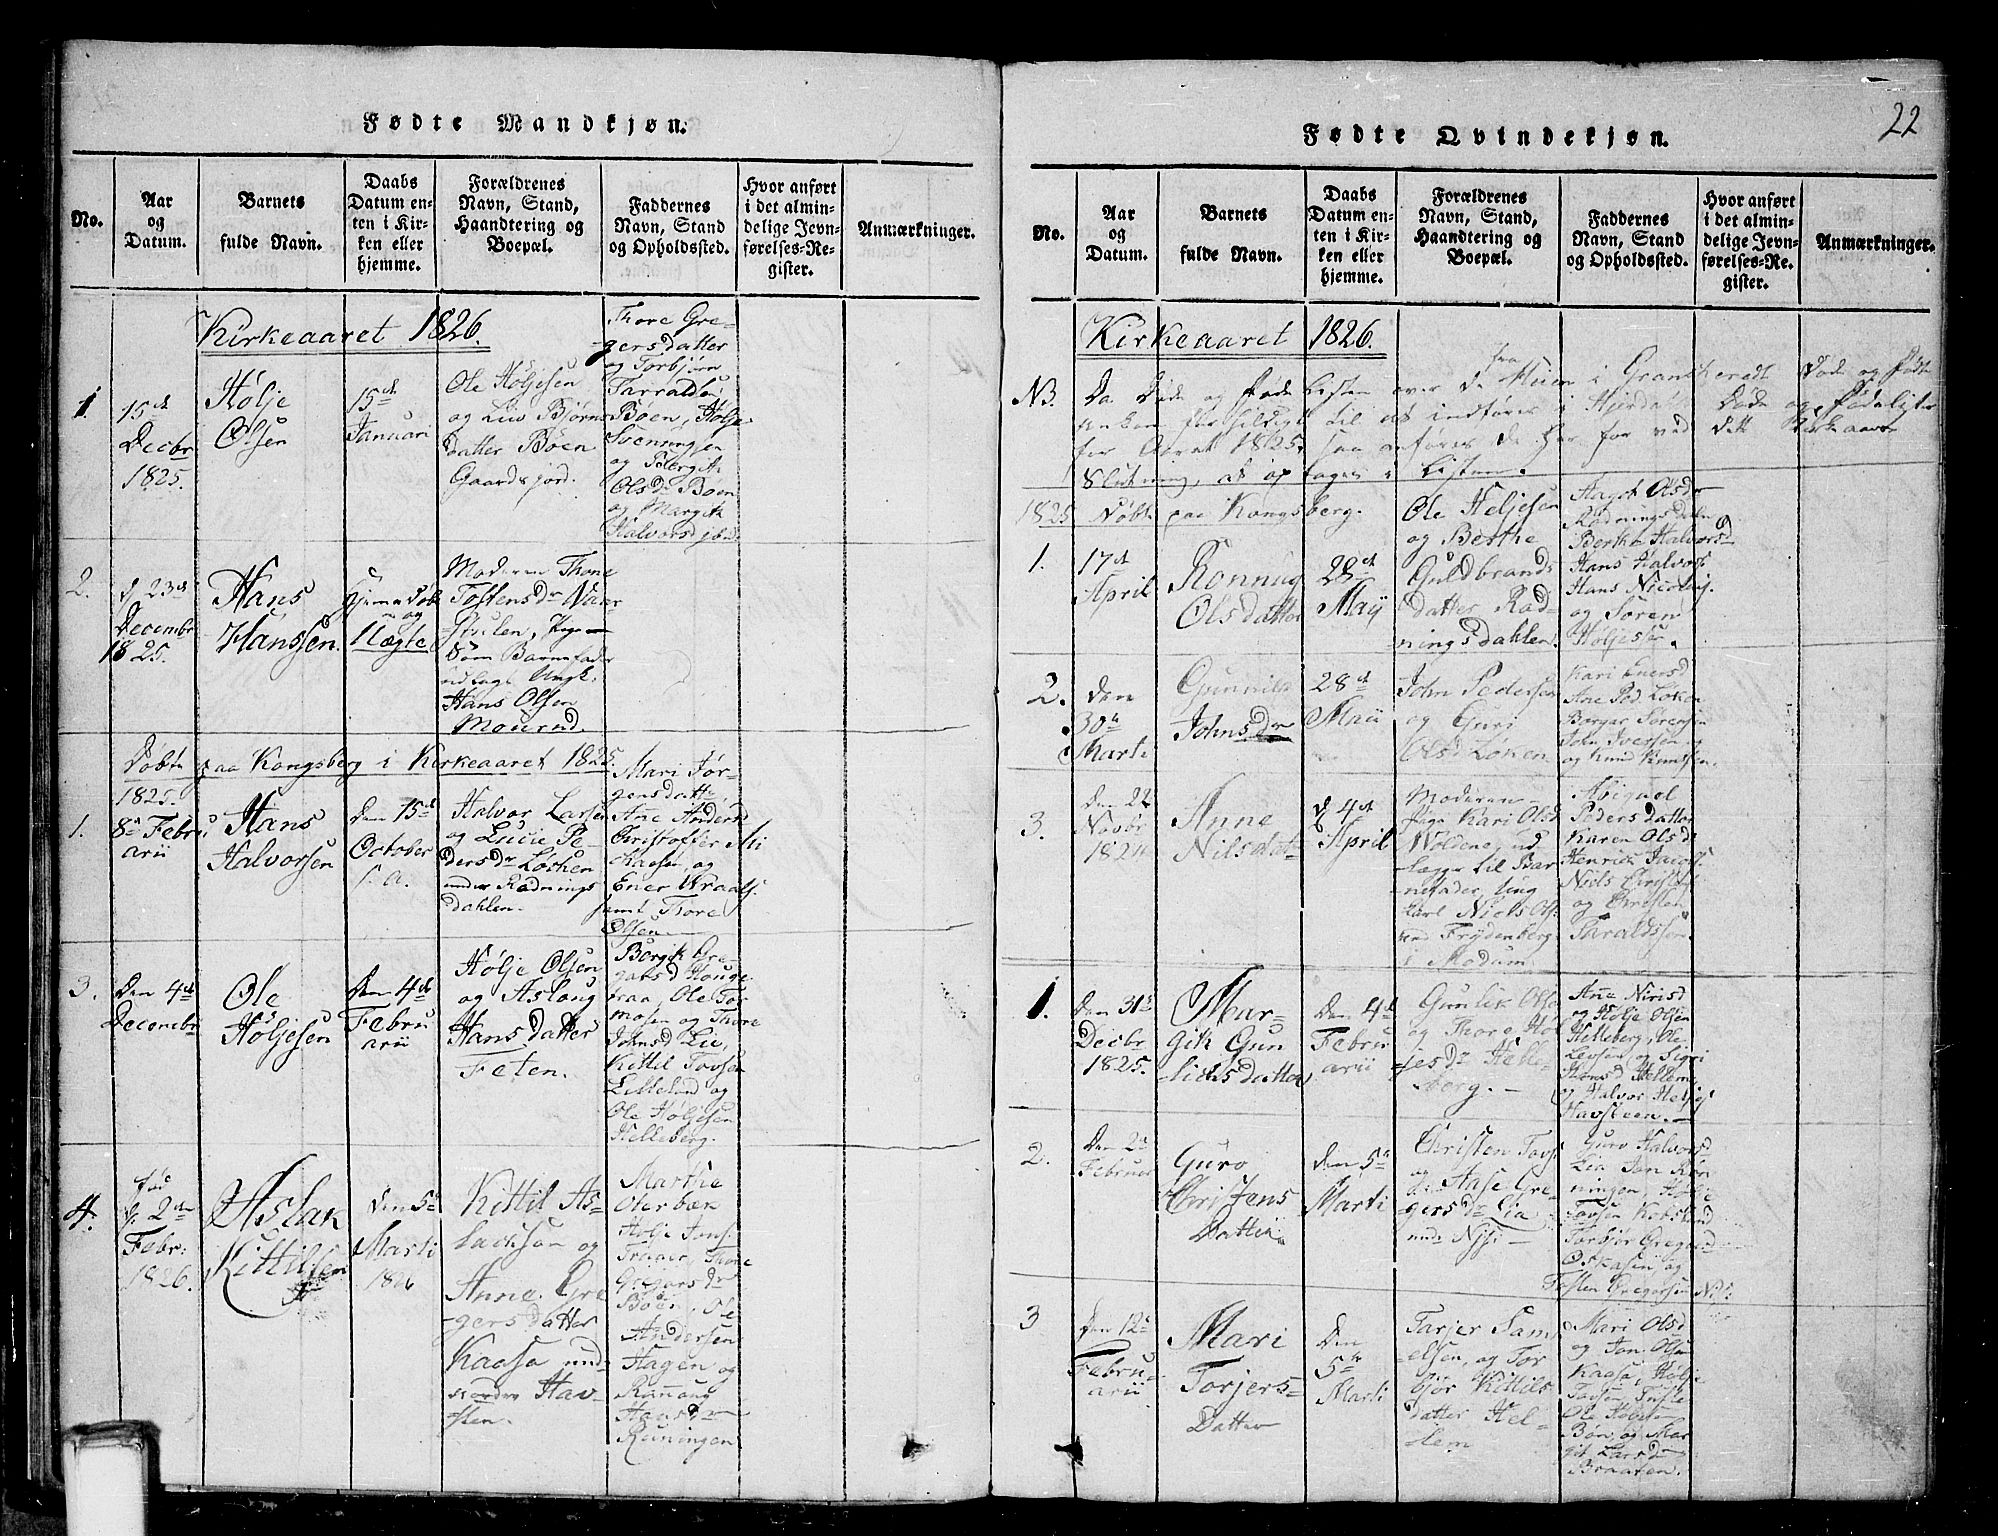 Fødte Mandkjøn.
No.
Aar
og
Datum.
Barnets
fulde Navn.
Daabs
Datum en-
ten i Kir-
ken eller
hjemme.
Forældrenes
Navn, Stand,
Haandtering og
Boepæl.
Faddernes
Navn, Stand
og Opholdssted.
Hvor anført
i det almin-
delige Jevn-
førelses-Re-
gister.
Anmærkninger.
Kirkeaaret 1826.
1
15de
Decbr
1825.
Hølje
Olsen
15de
Januari
Ole Høljesen
og Liv Bjørns
datter Bøen
Gaardsjord.
Thore Gre-
gersdatter
og Torbjørn
Tarralden
Bøen, Hølje
Svenungsen
og Bergit
Olsdr Bøen
og Margit
Halvorsd
2.
d. 23de
Decembr
1825.
Hans
Hanssen.
Hjemedøb
og
Nægte
Moderen Thone
Tostensdr
Barnefader
udlagt Ungk.
Hans Olsen
Døbte paa Kongsberg i Kirkeaaret 1825.
1825.
1.
8de Febru
arii
Hans
Halvorsen
Den 15de
October
s. a.
Halvor Larsen
og Lucie Pe-
dersdr Løcken
under Rødnings
dahlen.
Mari Jør-
gensdatte
Ane Anders
Christoffer Mi
Kaasen, og
Ener Wraals
samt Thore
Olsen.
3.
Den 4de
Decembr
Ole
Høljesen
Den 4de
Febru
arii
Hølje Olsen
og Aslaug
Hansdatter
Feten.
Bergit Gre-
gersd Houge
traa, Ole Tor
mosen og Thore
Johnsd Lie,
Kittil Tovsen
Lilleland og
Ole Høljesen
Helleberg.
4.
fød
d. 2den
Febr:
1826.
Aslak
Kittilsen
den 5te
Marti
1826
Kittil As-
lacksen og
Anne Gre
gersdatter
Kaasa und
nordre Hav-
sten.
Marthe
Oterbæk
Hølje Jons.
Traaer, Thone
Gregersdr
Bøen, Ole
Andersen
Hagen og
Rannaug
Hansdr
Reiningen
22
Fødte Qvindekjøn.
No.
Aar
og
Datum.
Barnets
fulde Navn.
Daabs
Datum en-
ten i Kir-
ken eller
hjemme.
Forældrenes
Navn, Stand,
Haandtering og
Boepæl.
Faddernes
Navn, Stand
og Opholdssted.
Hvor anført
i det almin-
delige Jevn-
førelses-Re-
gister.
Anmærkninger.
Kirkeaaret 1826.
NB. Da Døde og Føde Listen over de fra i Gransheradt Døde og Fødte
for sildigt til at indføres i Hjerdal Døde og Fødelister
for Aaret 1825, saa anføres de her for ved dette Kirkeaars
Slutning, at optages i Listen.
1825 Døbte paa Kongsberg.
1.
17de
April
Ronnug
Olsdatter
28de
Maij
Ole Heljesen
og Berthe
Guldbrands
datter Rød-
ningsdahlen.
Aagot Olsdr
Rødningsdalen
Berthe Halvorsd
Hans Halvors
Hans Nicolaj
og Søren
Høljesen.
2.
den
30te
Marti
Gunnild
Johnsdr
28de
Maii
John Pedersen
og Guri
Olsd Løken
Kari Enersd
Ane Ped. Løken
Borger Sørensen
John Iversen
og Knud Knutsen
3.
Den 22
Novbr
1824
Anne
Nilsdat
d. 4de
April
Moderen
Pige Kari Olsd
Woldene, ud
lægger til Bar
nefader, ung
karl Niels Ols
Frydenberg
i Modum
Abigael
Pedersdatter
Karen Olsd
Henrich Jacobs
Niels Christ
og Christen
Taraldssen.
1.
Den 31te
Decbr
1825.
Mar-
git Gun
lichsdatter,
Den 4de
Febru
arii
Gunlik Olse
og Thore Høl
jesdr Helle-
berg.
Ane Nirisd
og Hølje Olsen
Helleberg, Ole
Levsen, og Sigri
Hansd Hellem
og Halvor Heljes
Havsteen.
2.
Den 2de
Februar
Guro
Christens
Datter
den 5te
Marti
Christen Tovs
og Aase Gre-
gersdr Lia
Guro Halvorsd
Lia Jon Røn
ningen, Hølje
Tovsen Kobsland
Torbjør Gregersd
Oskasen og
Tosten Gregersen
3
Den 12te
Febru-
arii
Mari
Torjers-
Datter
Den
5te
Marti
Tarjer Sam-
elsen, og Tor
bjør Kittils
datter Hel-
lem
Mari Olsd
og Jon Olsen
Kaasa, Hølje
Tovsen
Ole Høljesen
Bøn, og Mar
git Larsdr
Braaten.